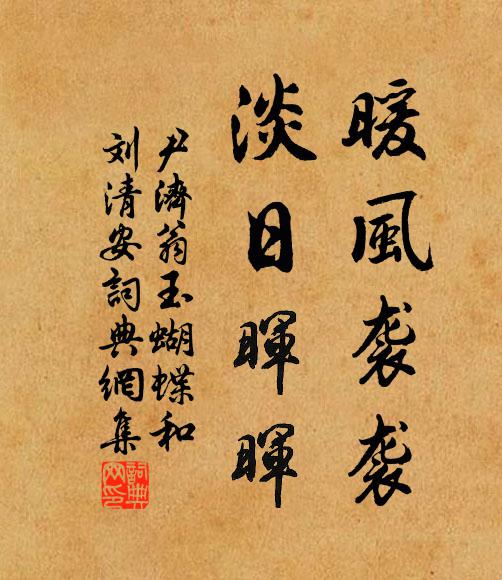 暖風袭袭
淡日暉暉
尹濟翁玉蝴蝶和
刘清安詞典網集
詞典
网印